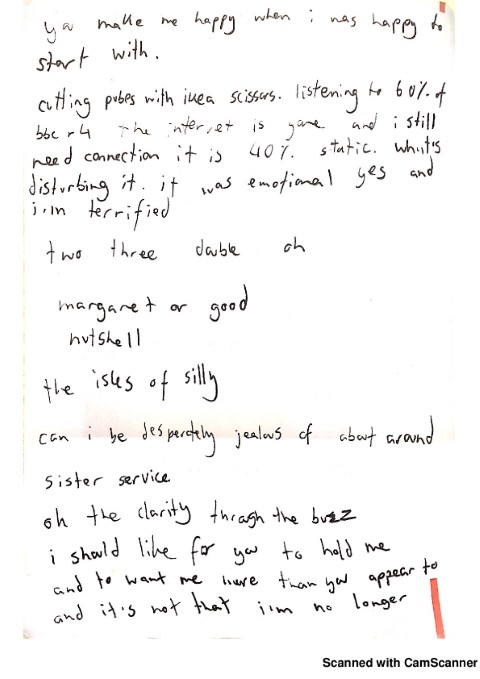 you make me happy when i was happy to
start with.
cutting pubes with ikea scissors. listening to 60% of
bbc r4 the internet is gone and i still
need connection it is 40% static. what's
disturbing it. it was emotional yes and
i'm terrified
two three double oh
margaret or good
nutshell
the isles of silly
can i be desperately jealous of about around
sister service
oh the clarity through the buzz
i should like for you to hold me
and to want me more than you appear to
and it's not that i'm no longer
Scanned with CamScanner